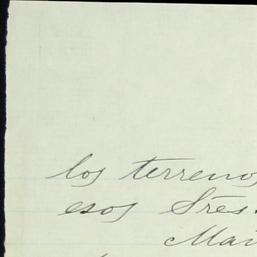 los terrenos
esos Sres.
Mai